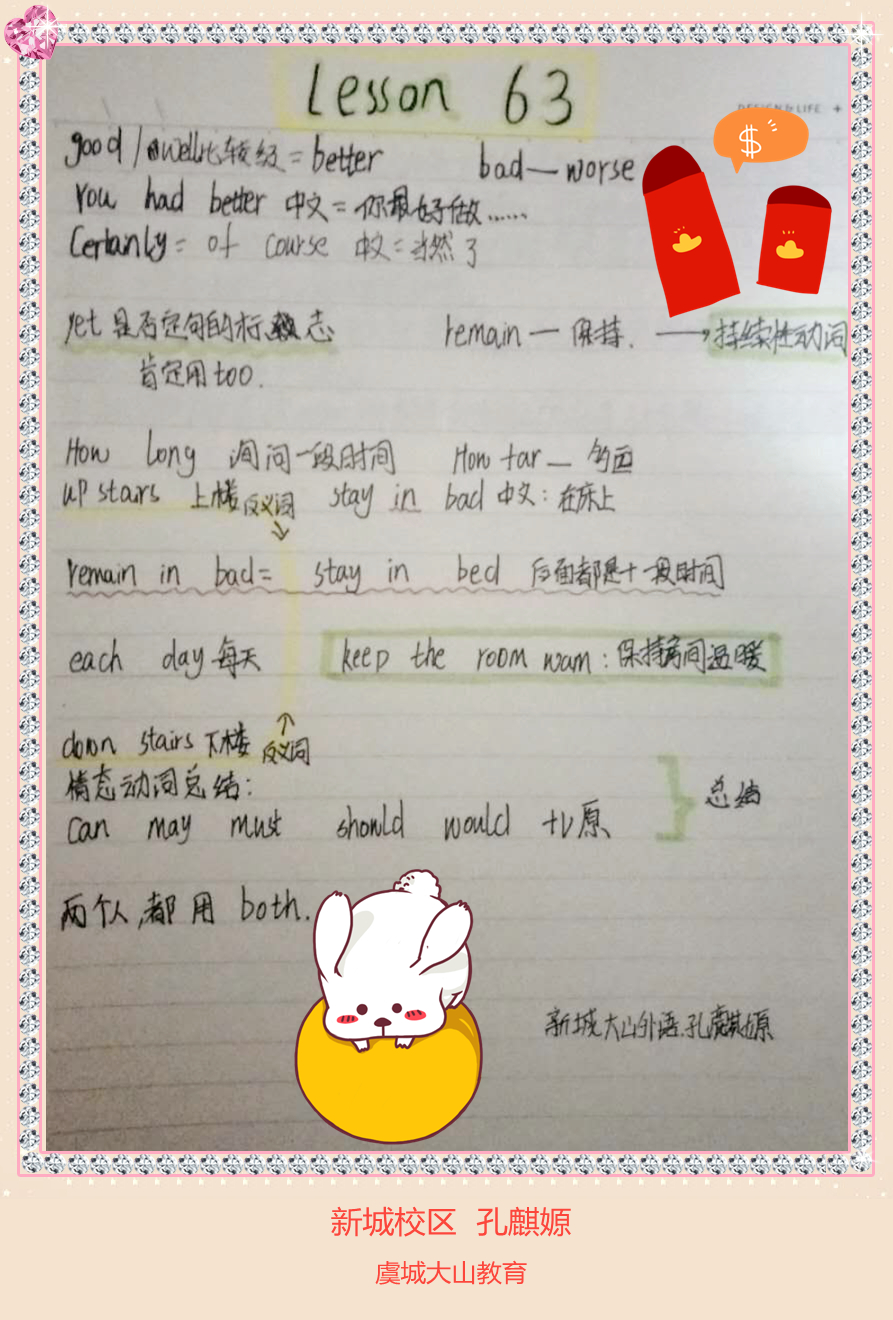 Lesson 63
DESIGN & LIFE +
$
good / well比较级 = better bad — worse
You had better 中文 = 你最好做……
Certanly = of course 中文 = 当然了
yet 是否定句的标志 remain — 保持. → 持续性动词
肯定用 too.
How long 询问一段时间 How far — 多远
up stairs 上楼 反义词 stay in bad 中文: 在床上
remain in bad = stay in bed 后面都是+一段时间
each day 每天 keep the room wam: 保持房间温暖
down stairs 下楼 反义词
情态动词总结:
can may must should would +V原 } 总结
两个人,都用 both.
新城大山外语.孔麒嫄
新城校区 孔麒嫄
虞城大山教育